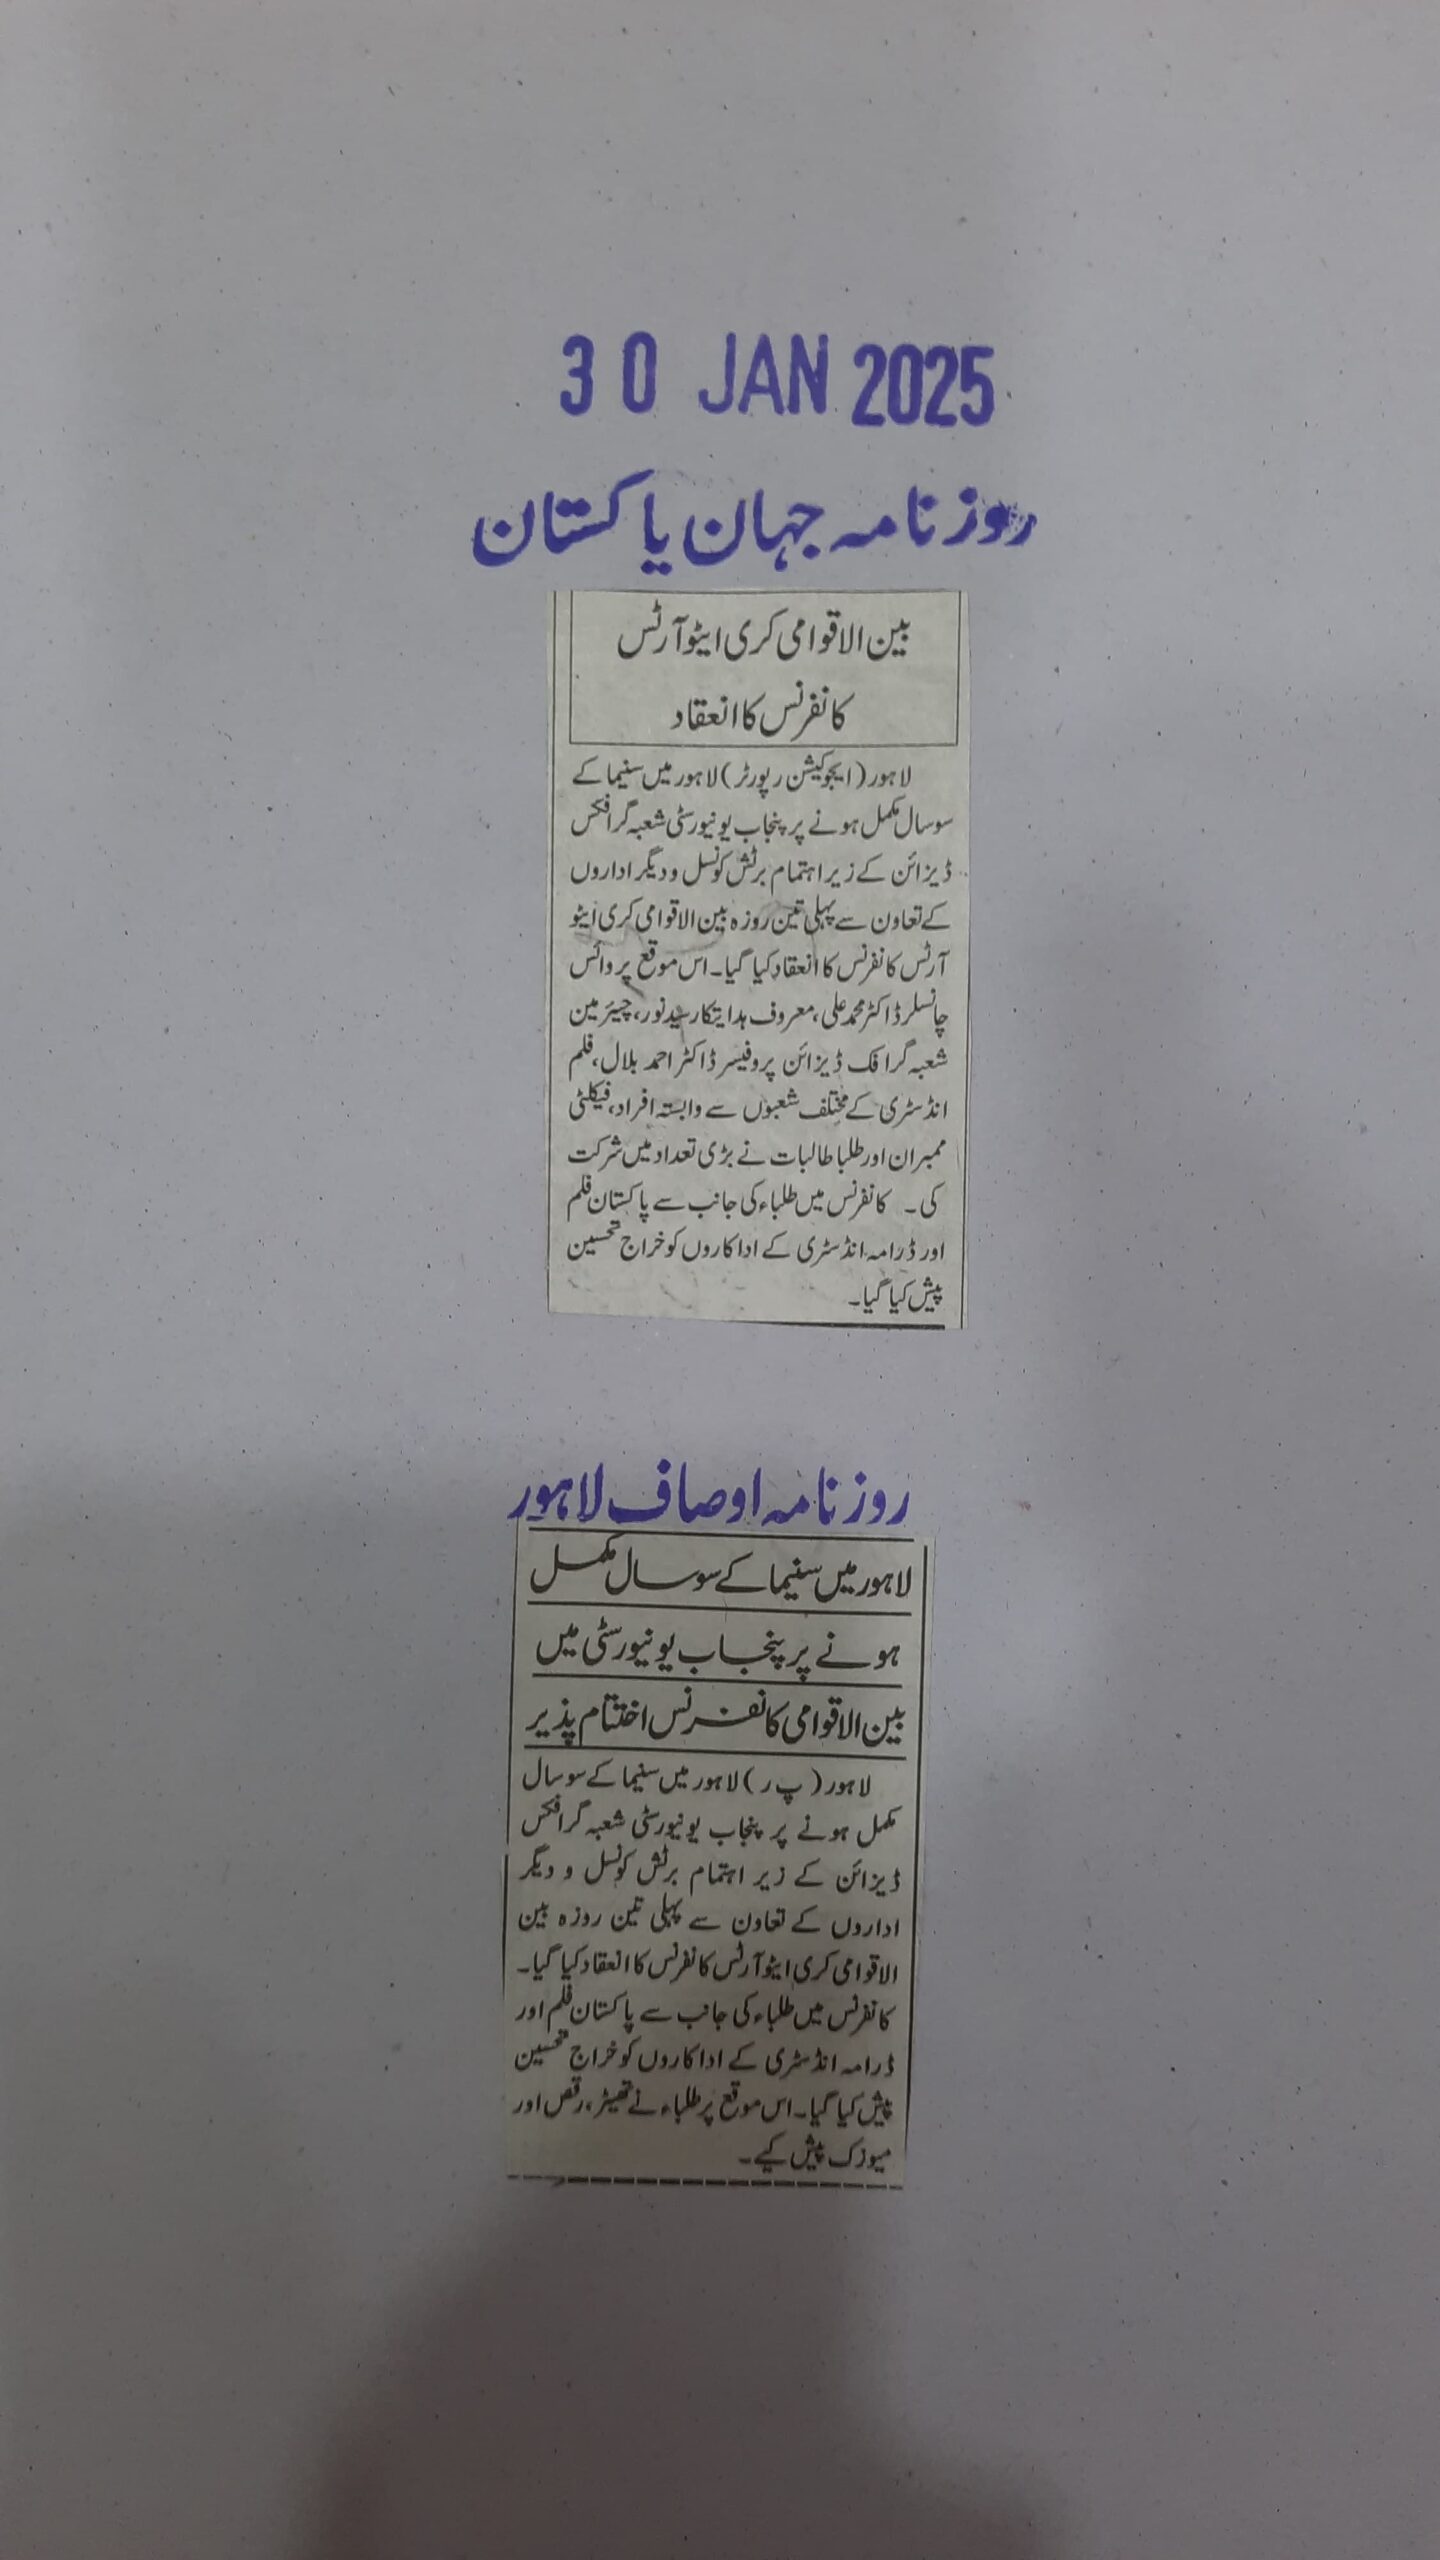 30 JAN 2025
روزنامہ جہان پاکستان
بین الاقوامی کری ایٹو آرٹس
کانفرنس کا انعقاد
لاہور (ایجوکیشن رپورٹر) لاہور میں سنیما کے
سو سال مکمل ہونے پر پنجاب یونیورسٹی شعبہ گرافکس
ڈیزائن کے زیر اہتمام برٹش کونسل و دیگر اداروں
کے تعاون سے پہلی تین روزہ بین الاقوامی کری ایٹو
آرٹس کانفرنس کا انعقاد کیا گیا۔ اس موقع پر وائس
چانسلر ڈاکٹر محمد علی، معروف ہدایتکار سید نور، چیئرمین
شعبہ گرافک ڈیزائن پروفیسر ڈاکٹر احمد بلال، فلم
انڈسٹری کے مختلف شعبوں سے وابستہ افراد، فیکلٹی
ممبران اور طلبا طالبات نے بڑی تعداد میں شرکت
کی۔ کانفرنس میں طلباء کی جانب سے پاکستان فلم
اور ڈرامہ انڈسٹری کے اداکاروں کو خراج تحسین
پیش کیا گیا۔
روزنامہ اوصاف لاہور
لاہور میں سنیما کے سو سال مکمل
ہونے پر پنجاب یونیورسٹی میں
بین الاقوامی کانفرنس اختتام پذیر
لاہور (پ ر) لاہور میں سنیما کے سو سال
مکمل ہونے پر پنجاب یونیورسٹی شعبہ گرافکس
ڈیزائن کے زیر اہتمام برٹش کونسل و دیگر
اداروں کے تعاون سے پہلی تین روزہ بین
الاقوامی کری ایٹو آرٹس کانفرنس کا انعقاد کیا گیا۔
کانفرنس میں طلباء کی جانب سے پاکستان فلم اور
ڈرامہ انڈسٹری کے اداکاروں کو خراج تحسین
پیش کیا گیا۔ اس موقع پر طلباء نے تھیٹر، رقص اور
میوزک پیش کیے۔